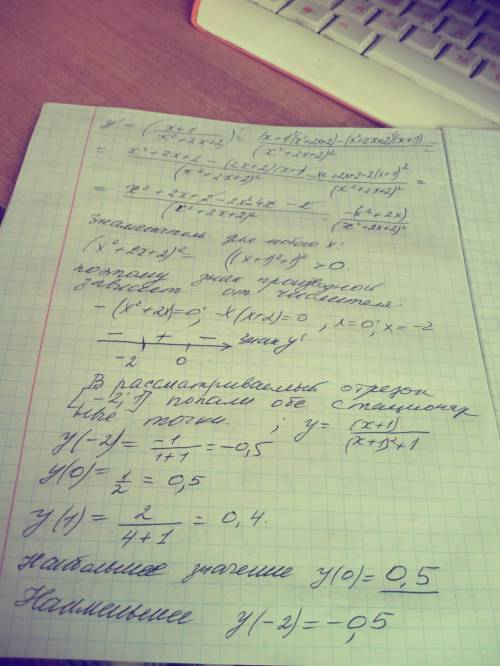 y' = (x+1 / x²+2x+2)' = (x+1)'(x²+2x+2)-(x²+2x+2)'(x+1) / (x²+2x+2)² =
= x²+2x+2-(2x+2)(x+1) / (x²+2x+2)² = x²+2x+2-2(x+1)² / (x²+2x+2)² =
= x²+2x+2-2x²-4x-2 / (x²+2x+2)² = -(x²+2x) / (x²+2x+2)²
Знаменатель для любого x:
(x²+2x+2)² = ((x+1)²+1)² > 0.
поэтому знак производной
зависит от числителя
-(x²+2x)=0; -x(x+2)=0; x=0; x=-2
- + - знак y'
-2 0
В рассматриваемый отрезок
[-2;1] попали обе стационар
ные точки. ; y = (x+1) / (x+1)²+1
y(-2) = -1 / 1+1 = -0,5
y(0) = 1/2 = 0,5
y(1) = 2 / 4+1 = 0,4.
Наибольшее значение y(0) = 0,5
Наименьшее y(-2) = -0,5